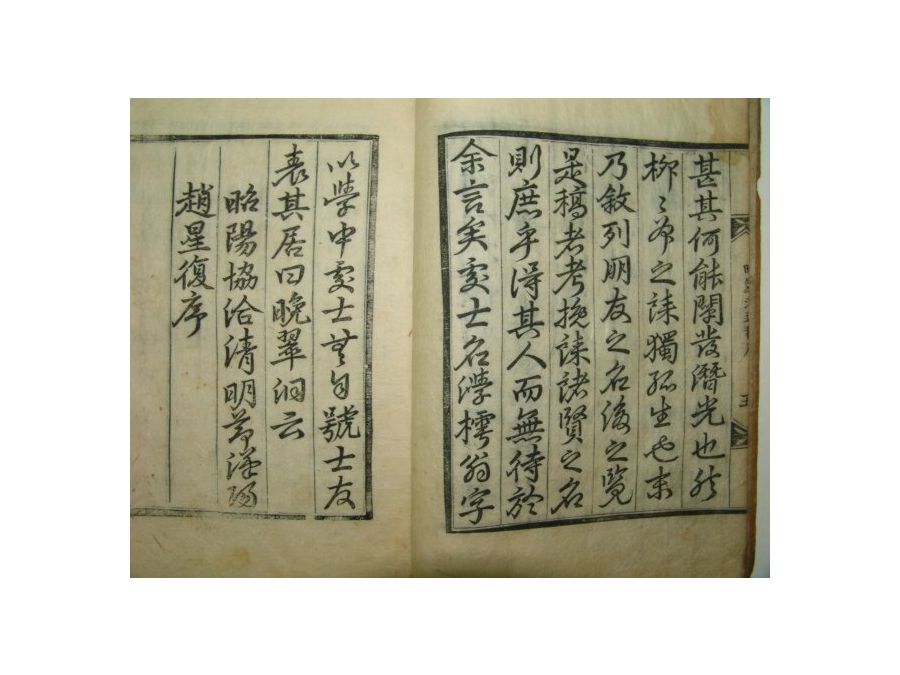 甚其何能闡發潛光也然
柳〻命之誄獨孤生也末
乃敘列朋友之名後之覽
是稿者考挽誄諸賢之名
則庶乎得其人而無待於
余言矣處士名學樗翁字
以學中處士無自號士友
表其居曰晩翠洞云
昭陽協洽淸明節漢陽
趙星復序